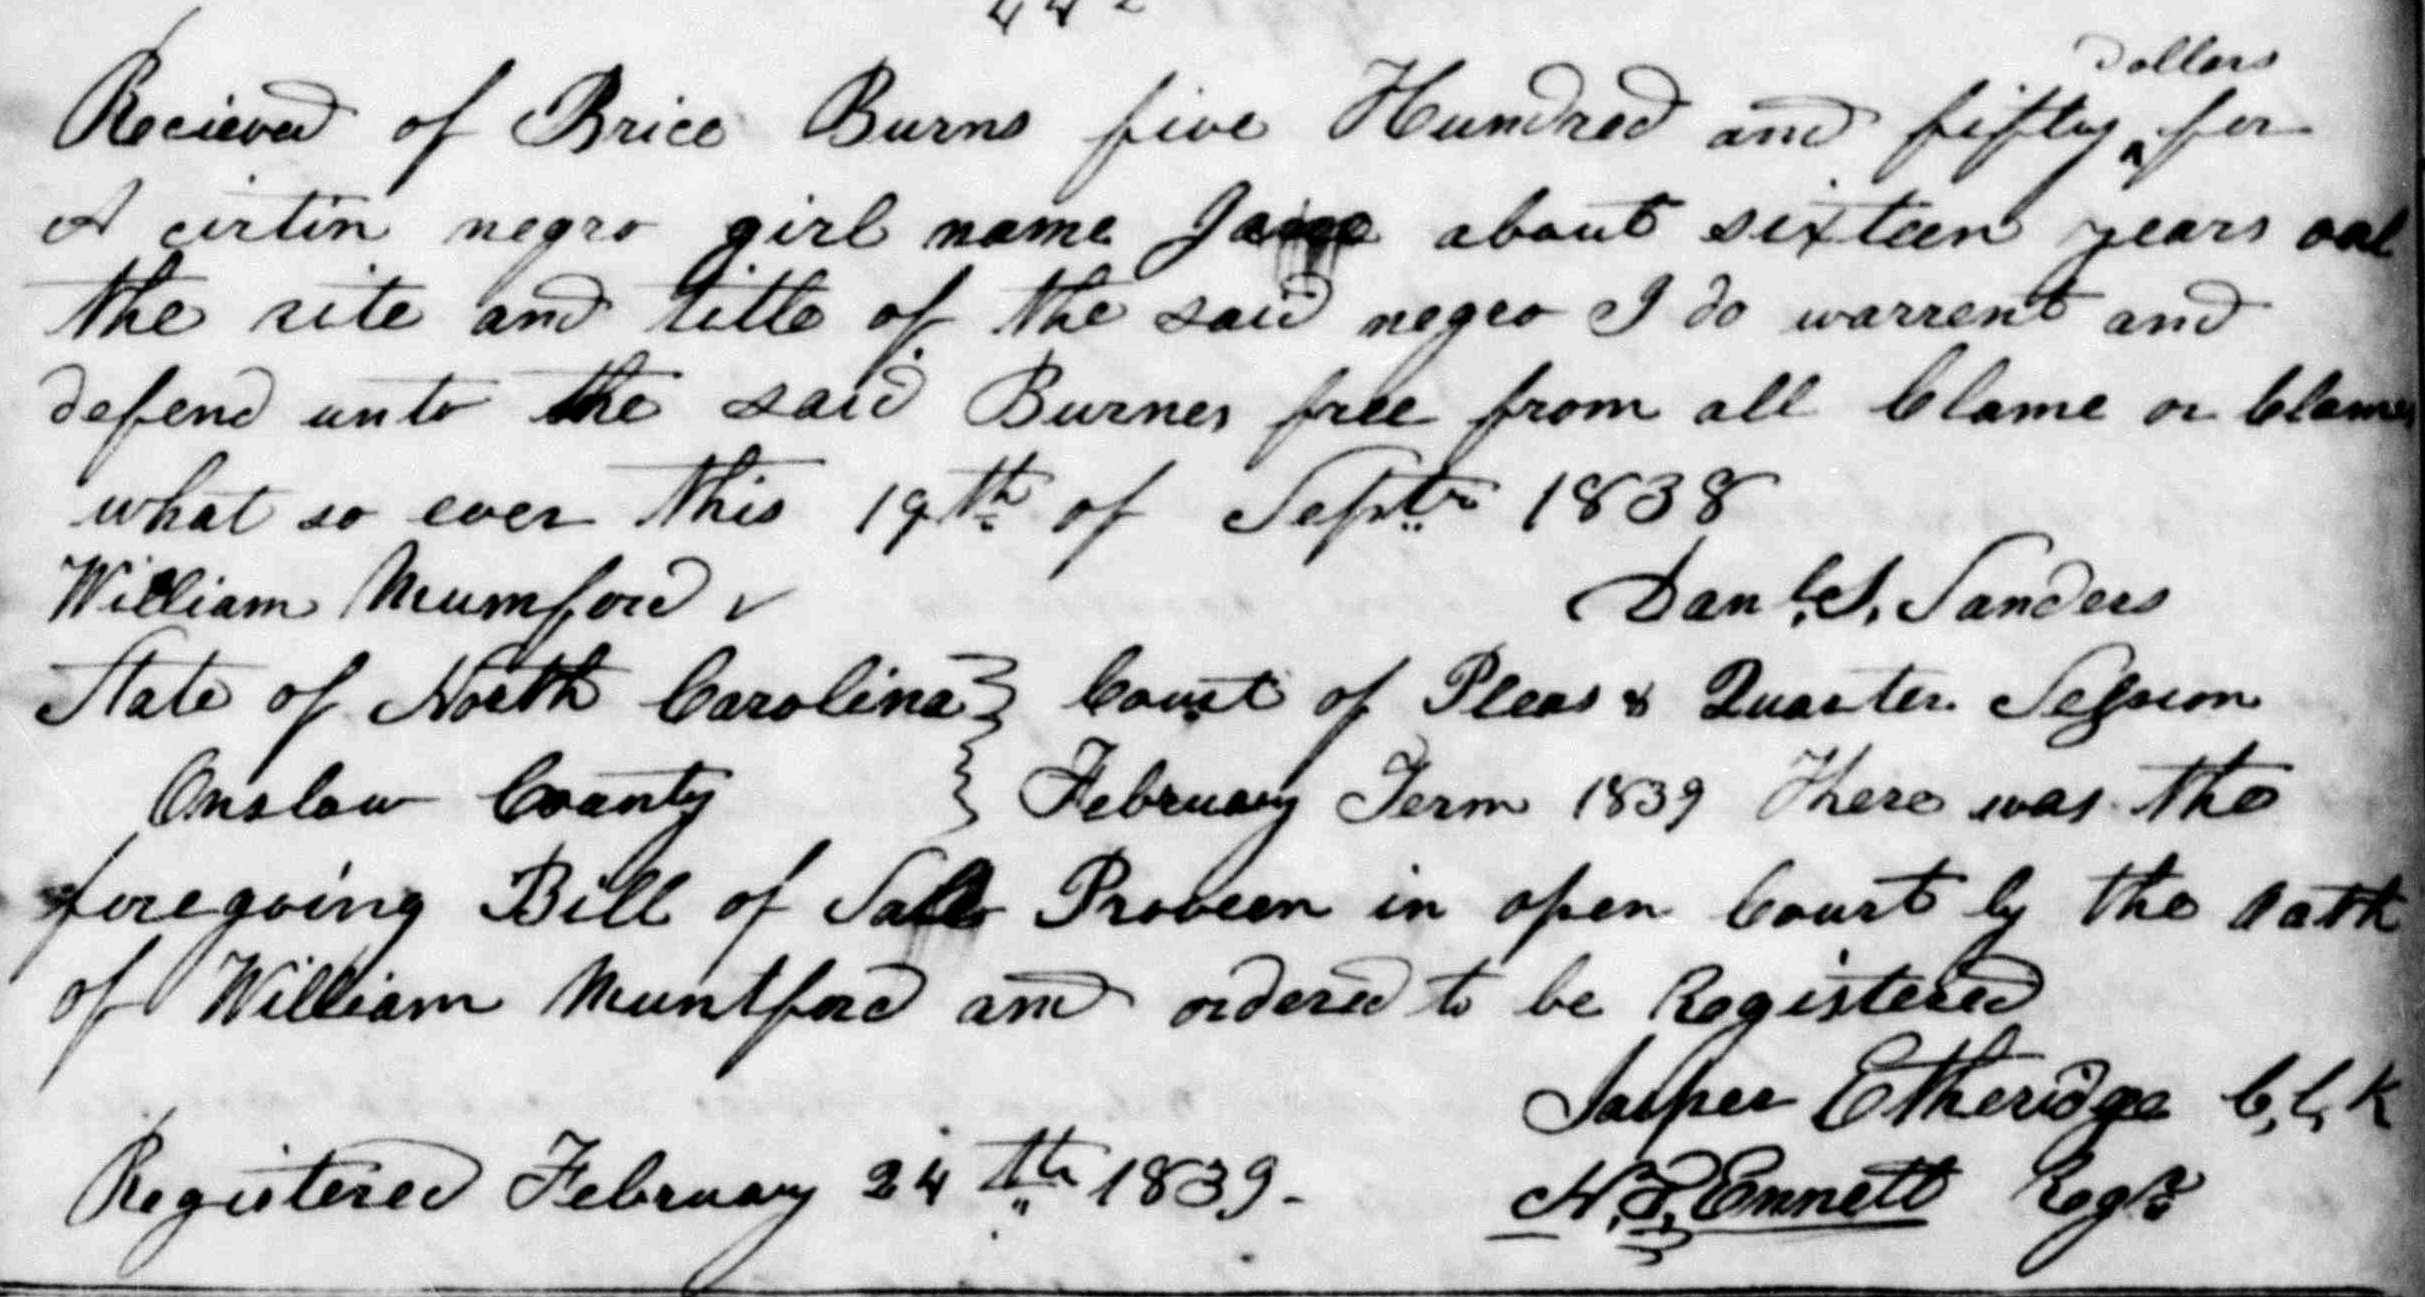 Recieved of Brice Burns five Hundred and fifty Dollars for
A cirtin negro girl name about sixteen years oal
the rite and title of the said negro I do warrent and
defend unto the said Burnes free from all Clame or Clames
what so ever this 19th of Septr 1838
William Mumford Danl. S. Sanders
State of North Carolina } Court of Pleas & Quarter Session
Onslow County } February Term 1839 There was the
foregoing Bill of Sale Proveen in open Court by the oath
of William Muntford and ordered to be Registered
Jasper Etheridge C, C, K
Registered February 24th 1839. N. Ennett Regr